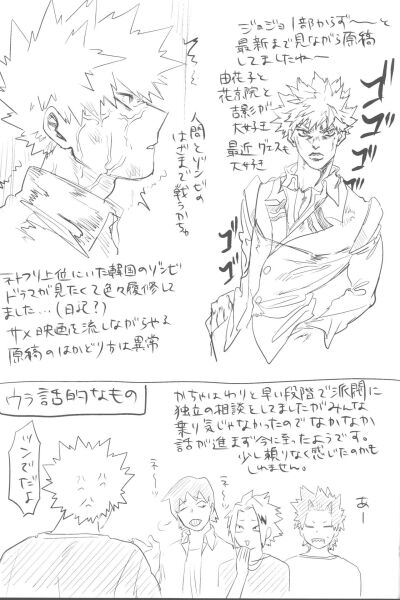 ジョジョ1部からずーーっと
最新まで見ながら原稿
してましたねー
由花子と
花京院と
吉影が
大好き
最近、グェスも
大好き
ゴゴゴ
ゴゴゴ
人間とゾンビの
はざまで戦うかちゃ
ネトフリ上位にいた韓国のゾンビ
ドラマが見たくて色々履修して
ました…(日記?)
サメ映画を流しながらやる
原稿のはかどり方は異常
ウラ話的なもの
かちゃはわりと早い段階で派閥に
独立の相談をしてましたがみんな
乗り気じゃなかったのでなかなか
話が進まず今に至ったようです。
少し頼りなく感じたのかも
しれません。
ツンでだよ
ネ〜
ネ〜
あー